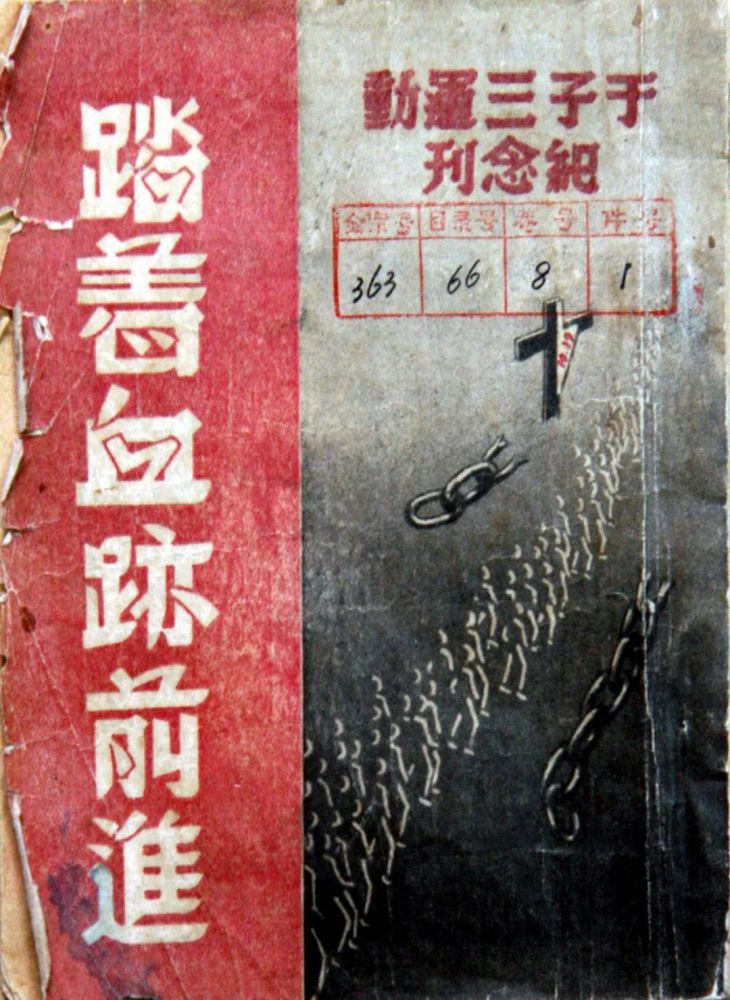 于子三運動
紀念刊
全宗号 目录号 卷号 件号
363 66 8 1
10.29
踏着血跡前進